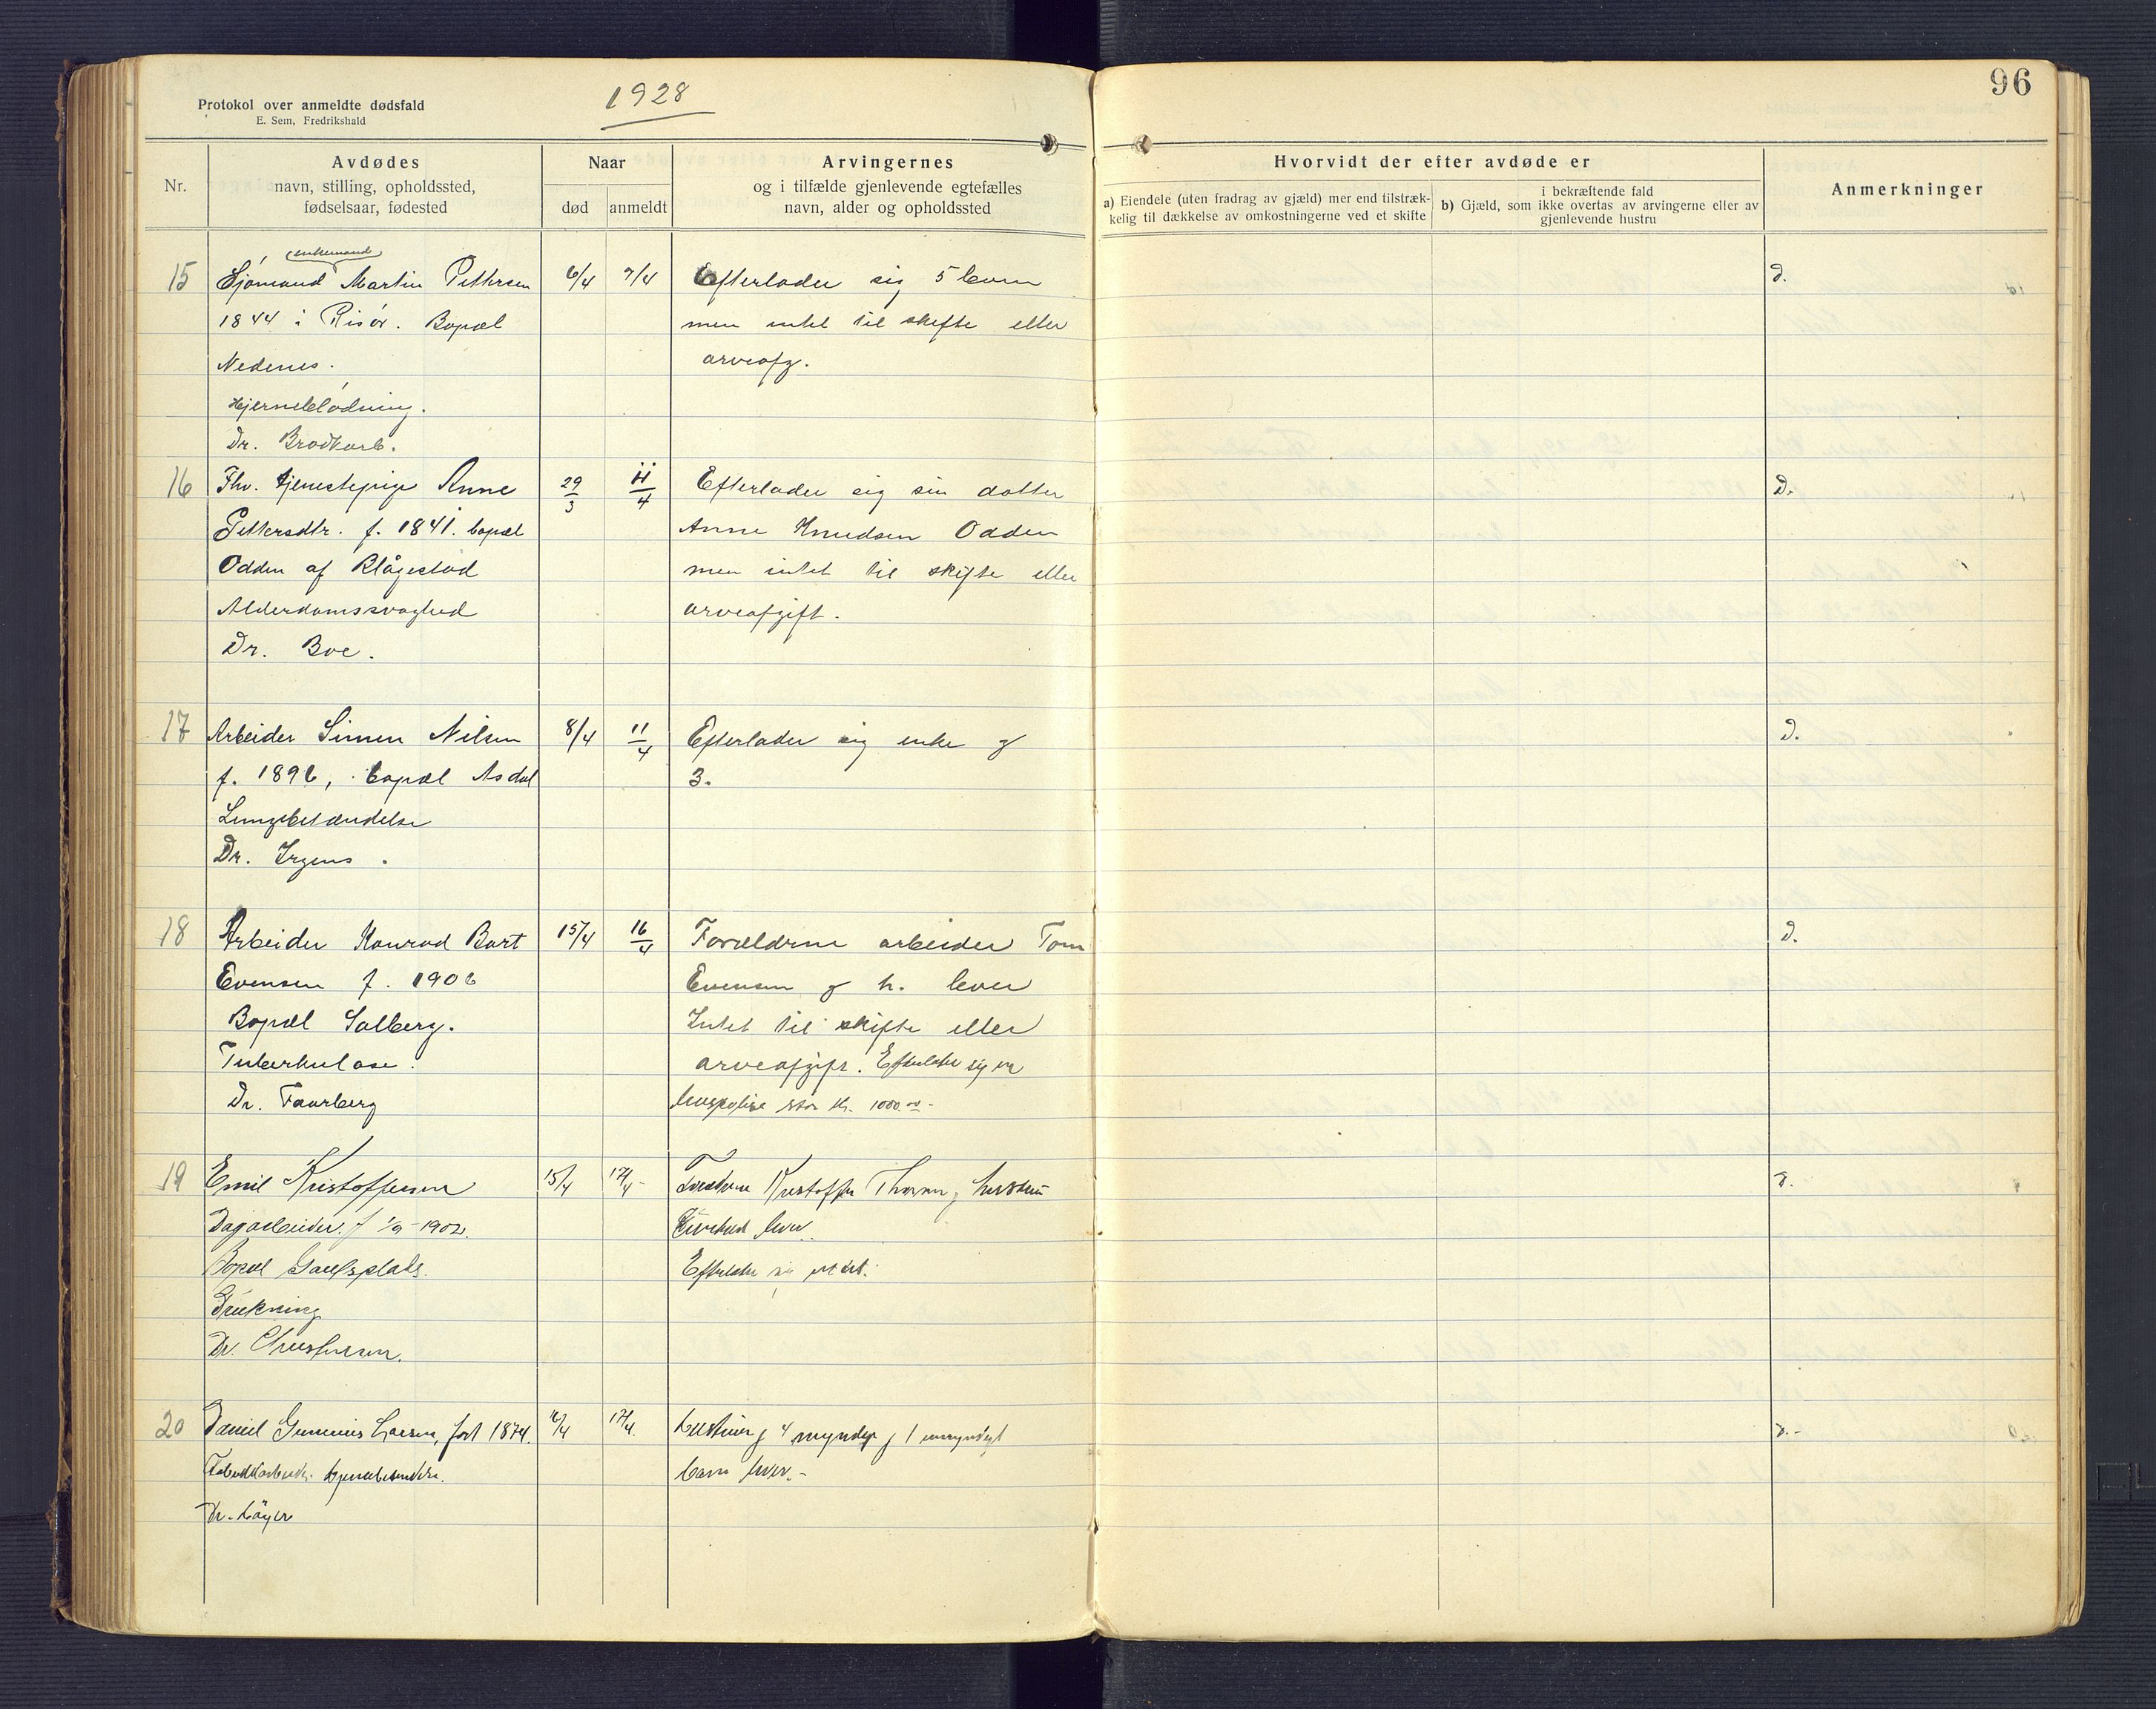 96
1928
Protokol over anmeldte dødsfald
E. Sem, Fredrikshald
Nr.
Avdødes
navn, stilling, opholdssted,
fødselsaar, fødested
Naar
død
anmeldt
Arvingernes
og i tilfælde gjenlevende egtefælles
navn, alder og opholdssted
Hvorvidt der efter avdøde er
a) Eiendele (uten fradrag av gjæld) mer end tilstræk-
kelig til dækkelse av omkostningerne ved et skifte
i bekræftende fald
b) Gjæld, som ikke overtas av arvingerne eller av
gjenlevende hustru
Anmerkninger
15
enkemand
Sjømand Martin Pettersen
1844 i Risør. Bopæl
Nedenes.
Hjerneblødning.
Dr. Brodkorb.
6/4
7/4
Efterlader sig 5 børn
men intet til skifte eller
arveafg.
D.
16
Fhv. tjenestepige Anne
Pettersdtr. f. 1841. bopæl
Odden af Blågestad
Alderdomssvaghed
Dr. Boe.
29/3
11/4
Efterlader sig sin datter
Anne Knudsen Odden
men intet til skifte eller
arveafgift.
D.
17
Arbeider Simen Nilsen
f. 1896, bopæl Asdal
Lungebetændelse
Dr. Irgens.
8/4
11/4
Efterlader sig enke og
3.
D.
18
Arbeider Konrad Bart
Evensen f. 1906
Bopæl Salberg.
Tuberkulose.
Dr. Faarberg
15/4
16/4
Forældrene arbeider Tom
Evensen og h. lever
Intet til skifte eller
arveafgift. Efterlader sig en
livspolise stor kr. 1000.00-
D.
19
Emil Kristoffersen
Dagarbeider. f 1/9-1902.
Bopæl
Drukning
Dr. Christensen.
15/4
17/4-
Forældrene Kristoffer og hustru
lever.
Efterlader sig intet.
D.
20
Daniel Larsen, født 1874.
Dr. Løyer
16/4
17/4.
Hustruen og 4 myndige og 1 umyndigt
barn lever.-
D.-